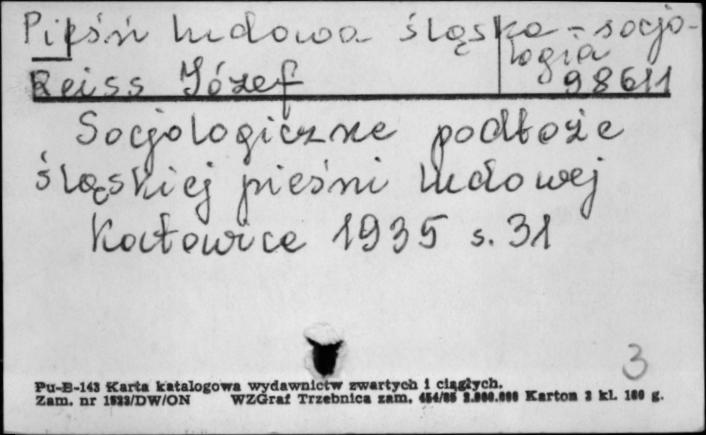 Pieśń ludowa śląska - socjo-
logia
Reiss Józef 98611
Socjologiczne podłoże
śląskiej pieśni ludowej
Katowice 1935 s. 31
3
Pu-B-143 Karta katalogowa wydawnictw zwartych i ciągłych.
Zam. nr 1523/DW/ON WZGraf Trzebnica zam. 454/85 2.000.000 Karton 3 kl. 160 g.